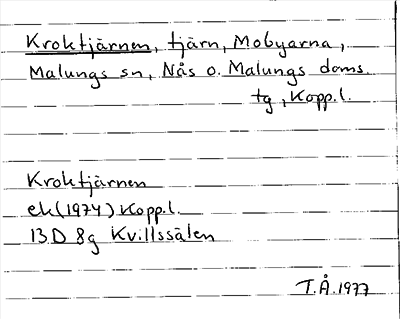 Kroktjärnen, tjärn, Mobyarna,
Malungs sn, Nås o. Malungs doms.
tg, Kopp.l.
Kroktjärnen
ek(1974) Kopp.l.
13D 8g Kvillssälen
T.Å.1977